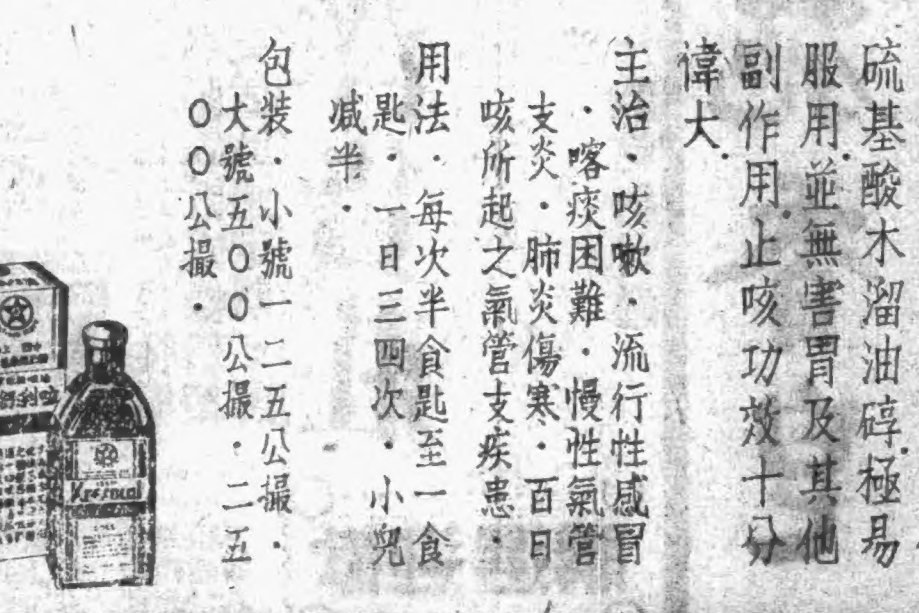 硫基酸木溜油碍極易
服用並無害胃及其他
副作用止咳功效十分
偉大.
主治・咳嗽・流行性感冒
・喀痰困難・慢性氣管
支炎・肺炎傷寒・百日
咳所起之氣管支疾患・
用法・每次半食匙至一食
匙・一日三四次・小兒
減半・
包裝・小號一二五公撮・
大號五00公撮・二五
00公撮・